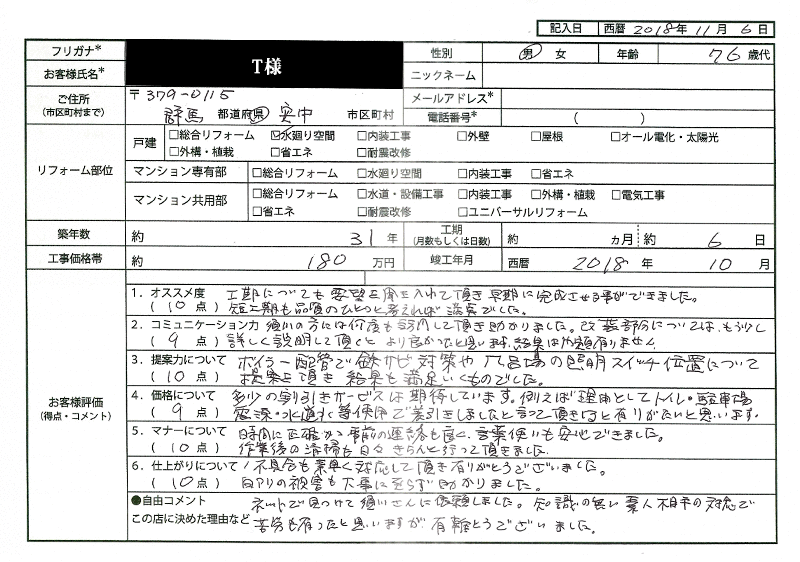 記入日 西暦 2018年 11月 6日
フリガナ* T様 性別 男 女 年齢 76 歳代
お客様氏名* ニックネーム
ご住所 (市区町村まで) 〒379-0115 メールアドレス*
群馬 都道府県 安中 市区町村 電話番号* ( )
リフォーム部位 戸建 □総合リフォーム ☑水廻り空間 □内装工事 □外壁 □屋根 □オール電化・太陽光
□外構・植栽 □省エネ □耐震改修
マンション専有部 □総合リフォーム □水廻り空間 □内装工事 □省エネ
マンション共用部 □総合リフォーム □水道・設備工事 □内装工事 □外構・植栽 □電気工事
□省エネ □耐震改修 □ユニバーサルリフォーム
築年数 約 31 年 工期 (月数もしくは日数) 約 カ月 約 6 日
工事価格帯 約 180 万円 竣工年月 西暦 2018 年 10 月
お客様評価 (得点・コメント)
1. オススメ度 工期についても要望を聞き入れて頂き早期に完成させる事ができました。
(10点) 短工期も品質のひとつと考えれば満足でした。
2. コミュニケーション力 須川の方には何度も訪問して頂き助かりました。改装部分については、もう少し
(9点) 詳しく説明して頂くとより良かったと思います。結果は問題有りません。
3. 提案力について ボイラー配管で鉄サビ対策や風呂場の照明スイッチ位置について
(10点) 提案を頂き結果も満足いくものでした。
4. 価格について 多少の割引きサービスは期待しています。例えば理由としてトイレ・駐車場
(9点) 電源・水道水等使用で差引きしましたと言って頂けると有りがたいと思います。
5. マナーについて 時間に正確かつ事前の連絡も良く、言葉使いも安心できました。
(10点) 作業後の清掃も日々きちんと行って頂きました。
6. 仕上がりについて 不具合も素早く対応して頂き有りがとうございました。
(10点) 白アリの被害も大事に至らず助かりました。
●自由コメント ネットで見つけて須川さんに依頼しました。知識の無い素人相手の対応で
この店に決めた理由など 苦労も有ったと思いますが有難とうございました。